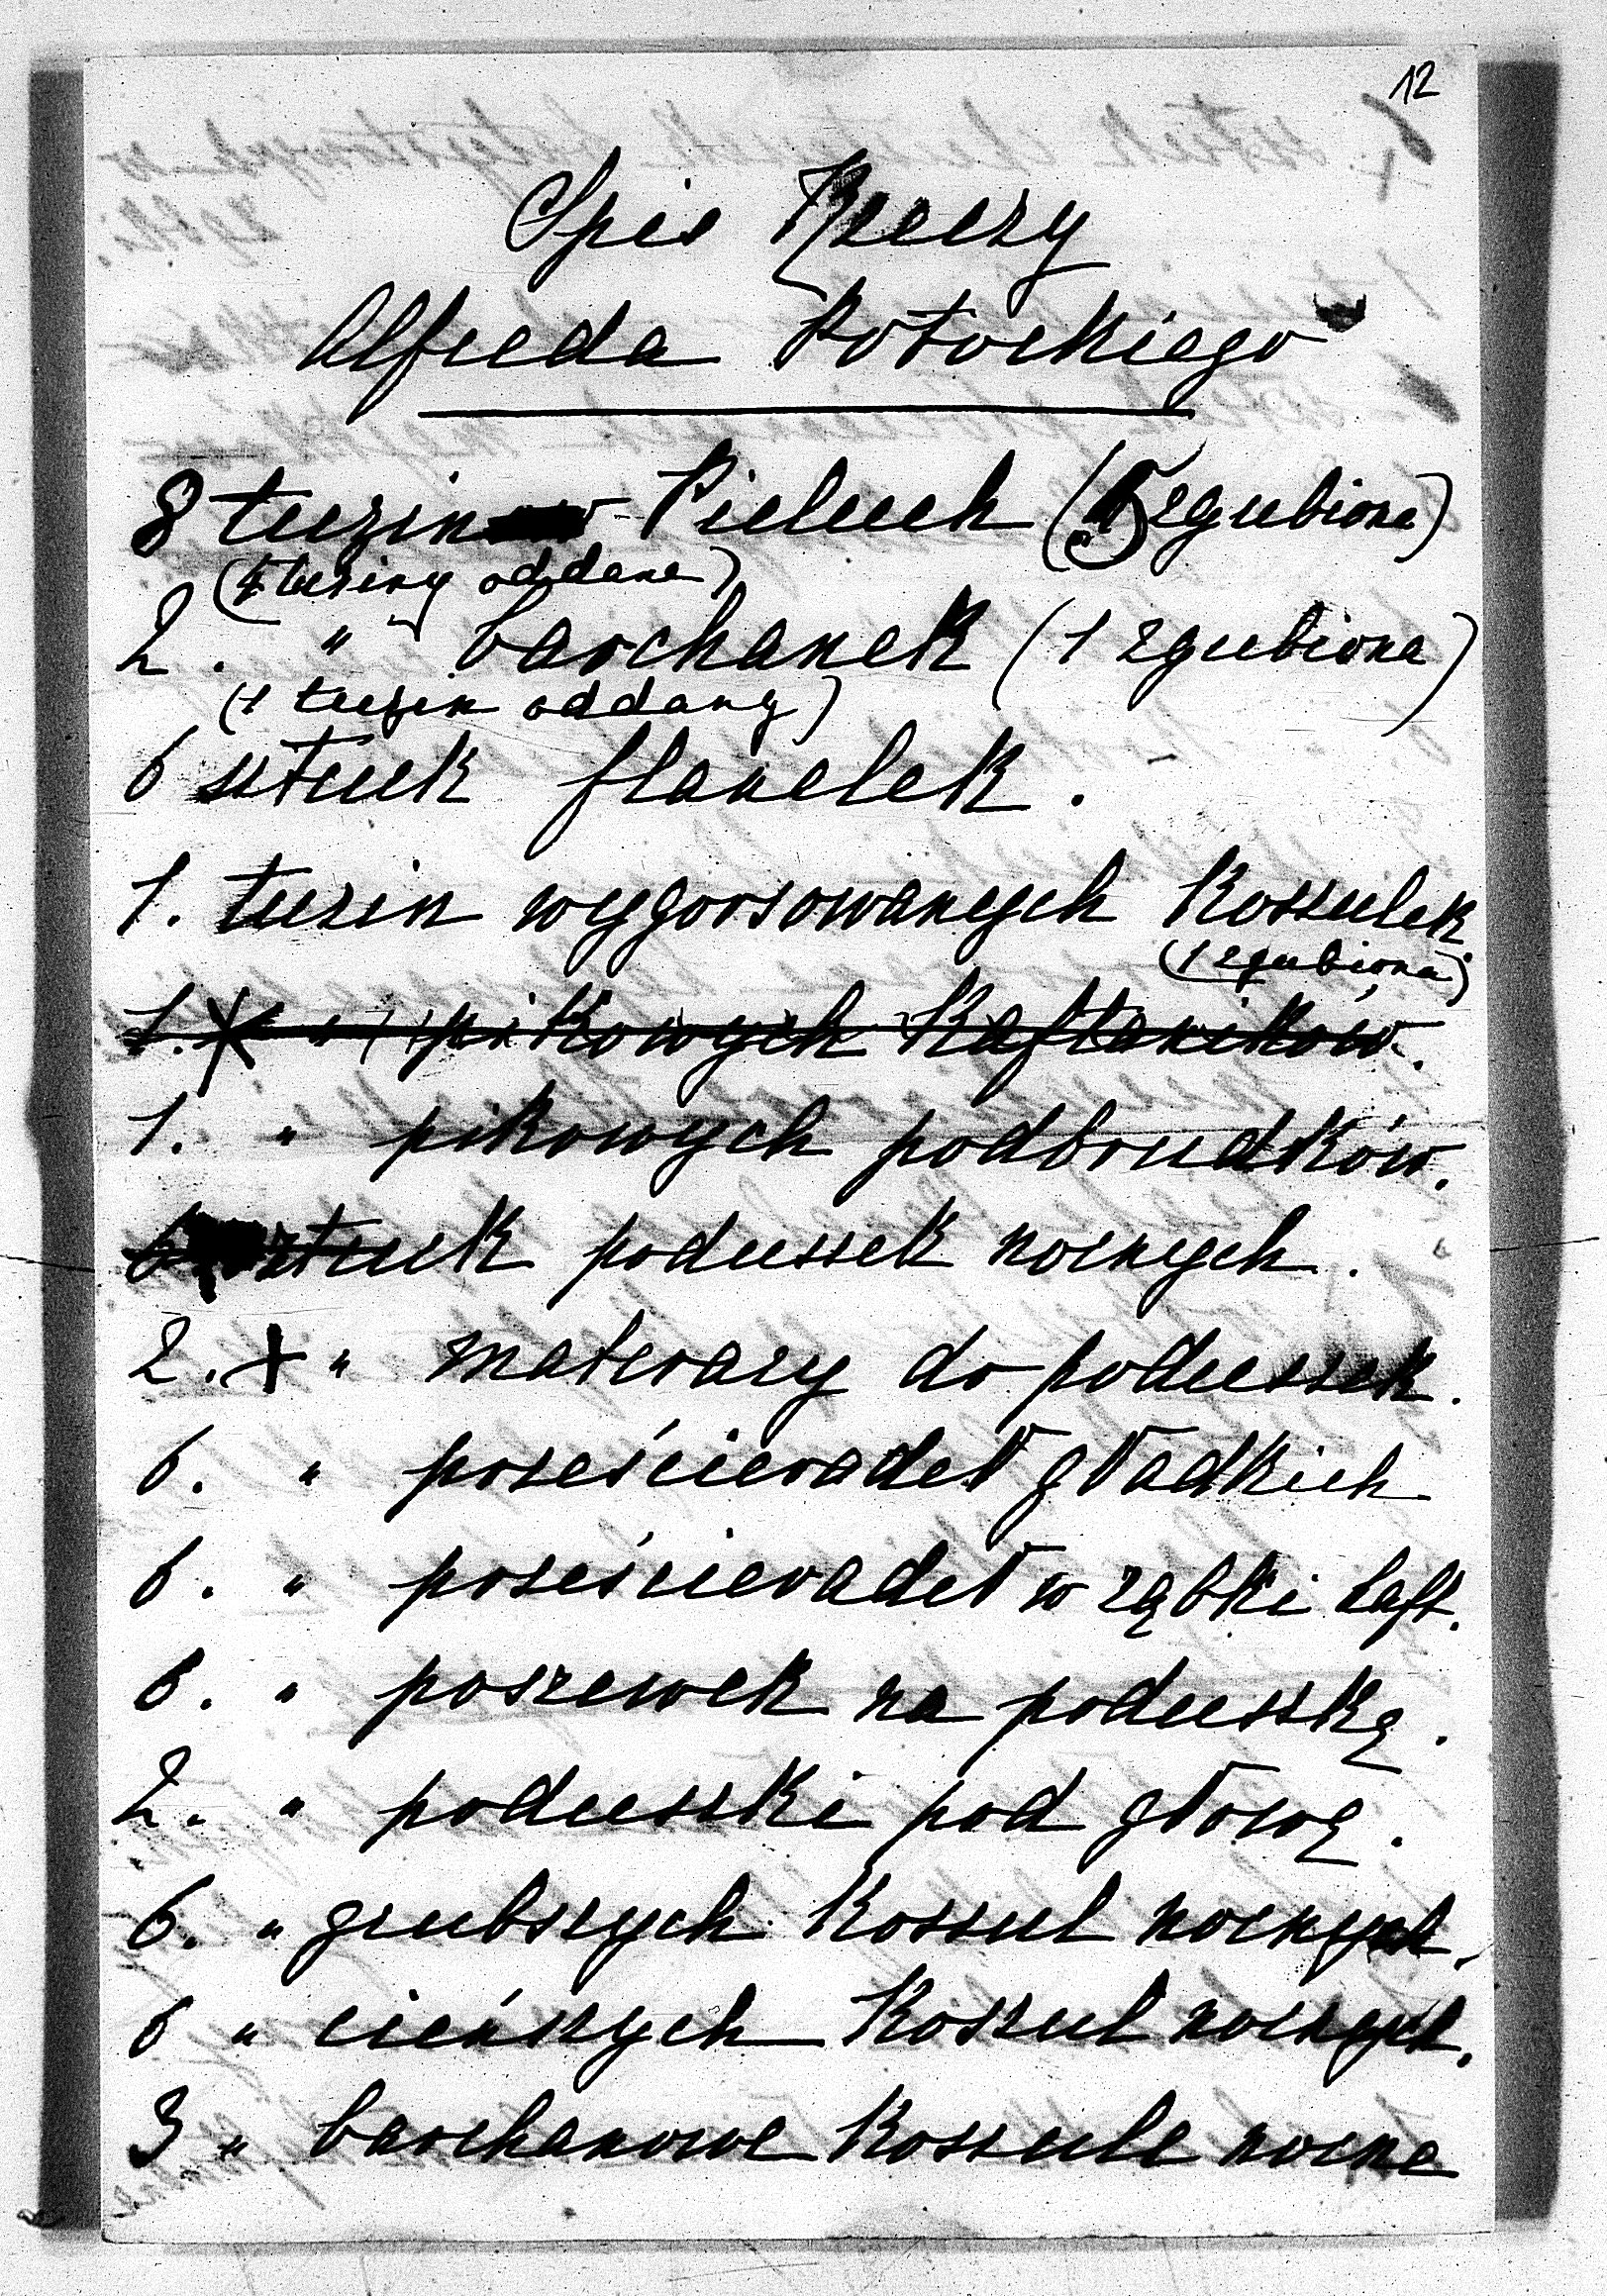 12
Spis Rzeczy
Alfreda Potockiego
8 tuzinów Pieluch (5 zgubione)
(4 tuziny oddane)
2. " barchanek (1 zgubiona)
(1 tuzin oddany)
6 sztuk flanelek.
1. tuzin wygorsowanych Koszulek
(1 zgubiona)
1. " pikowych Kaftaników.
1. " pikowych podbrudków.
6 sztuk poduszek nocnych.
2. + " materazy do poduszek.
6. " prześcieradeł gładkich
6. " prześcieradeł w ząbki haft.
6. " poszewek na poduszkę.
2. " poduszki pod głowę.
6. " grubszych Koszul nocnych.
6 " cieńszych Koszul nocnych.
3 " barchanowe Koszule nocne